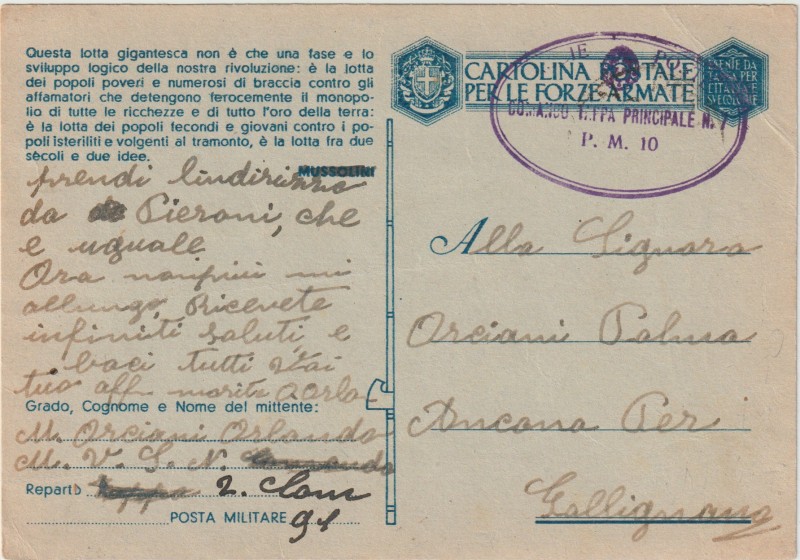 Questa lotta gigantesca non è che una fase e lo
sviluppo logico della nostra rivoluzione: è la lotta
dei popoli poveri e numerosi di braccia contro gli
affamatori che detengono ferocemente il monopo-
lio di tutte le ricchezze e di tutto l'oro della terra:
è la lotta dei popoli fecondi e giovani contro i po-
poli isteriliti e volgenti al tramonto, è la lotta fra due
secoli e due idee.
MUSSOLINI
prendi lindirizzo
da Pieroni, che
e uguale
Ora non più mi
allungo, Ricevete
infiniti saluti e
baci tutti
tuo aff marito Orla
Grado, Cognome e Nome del mittente:
M. Orciani Orlando
M. V. S. N.
Reparto 2. Com
POSTA MILITARE 91
CARTOLINA POSTALE
PER LE FORZE ARMATE
ESENTE DA
TASSA PER
L'ITALIA E
SVIZZERA
COMANDO TAPPA PRINCIPALE N. 7
P. M. 10
Alla Signora
Orciani Palma
Ancona Per
Gallignano